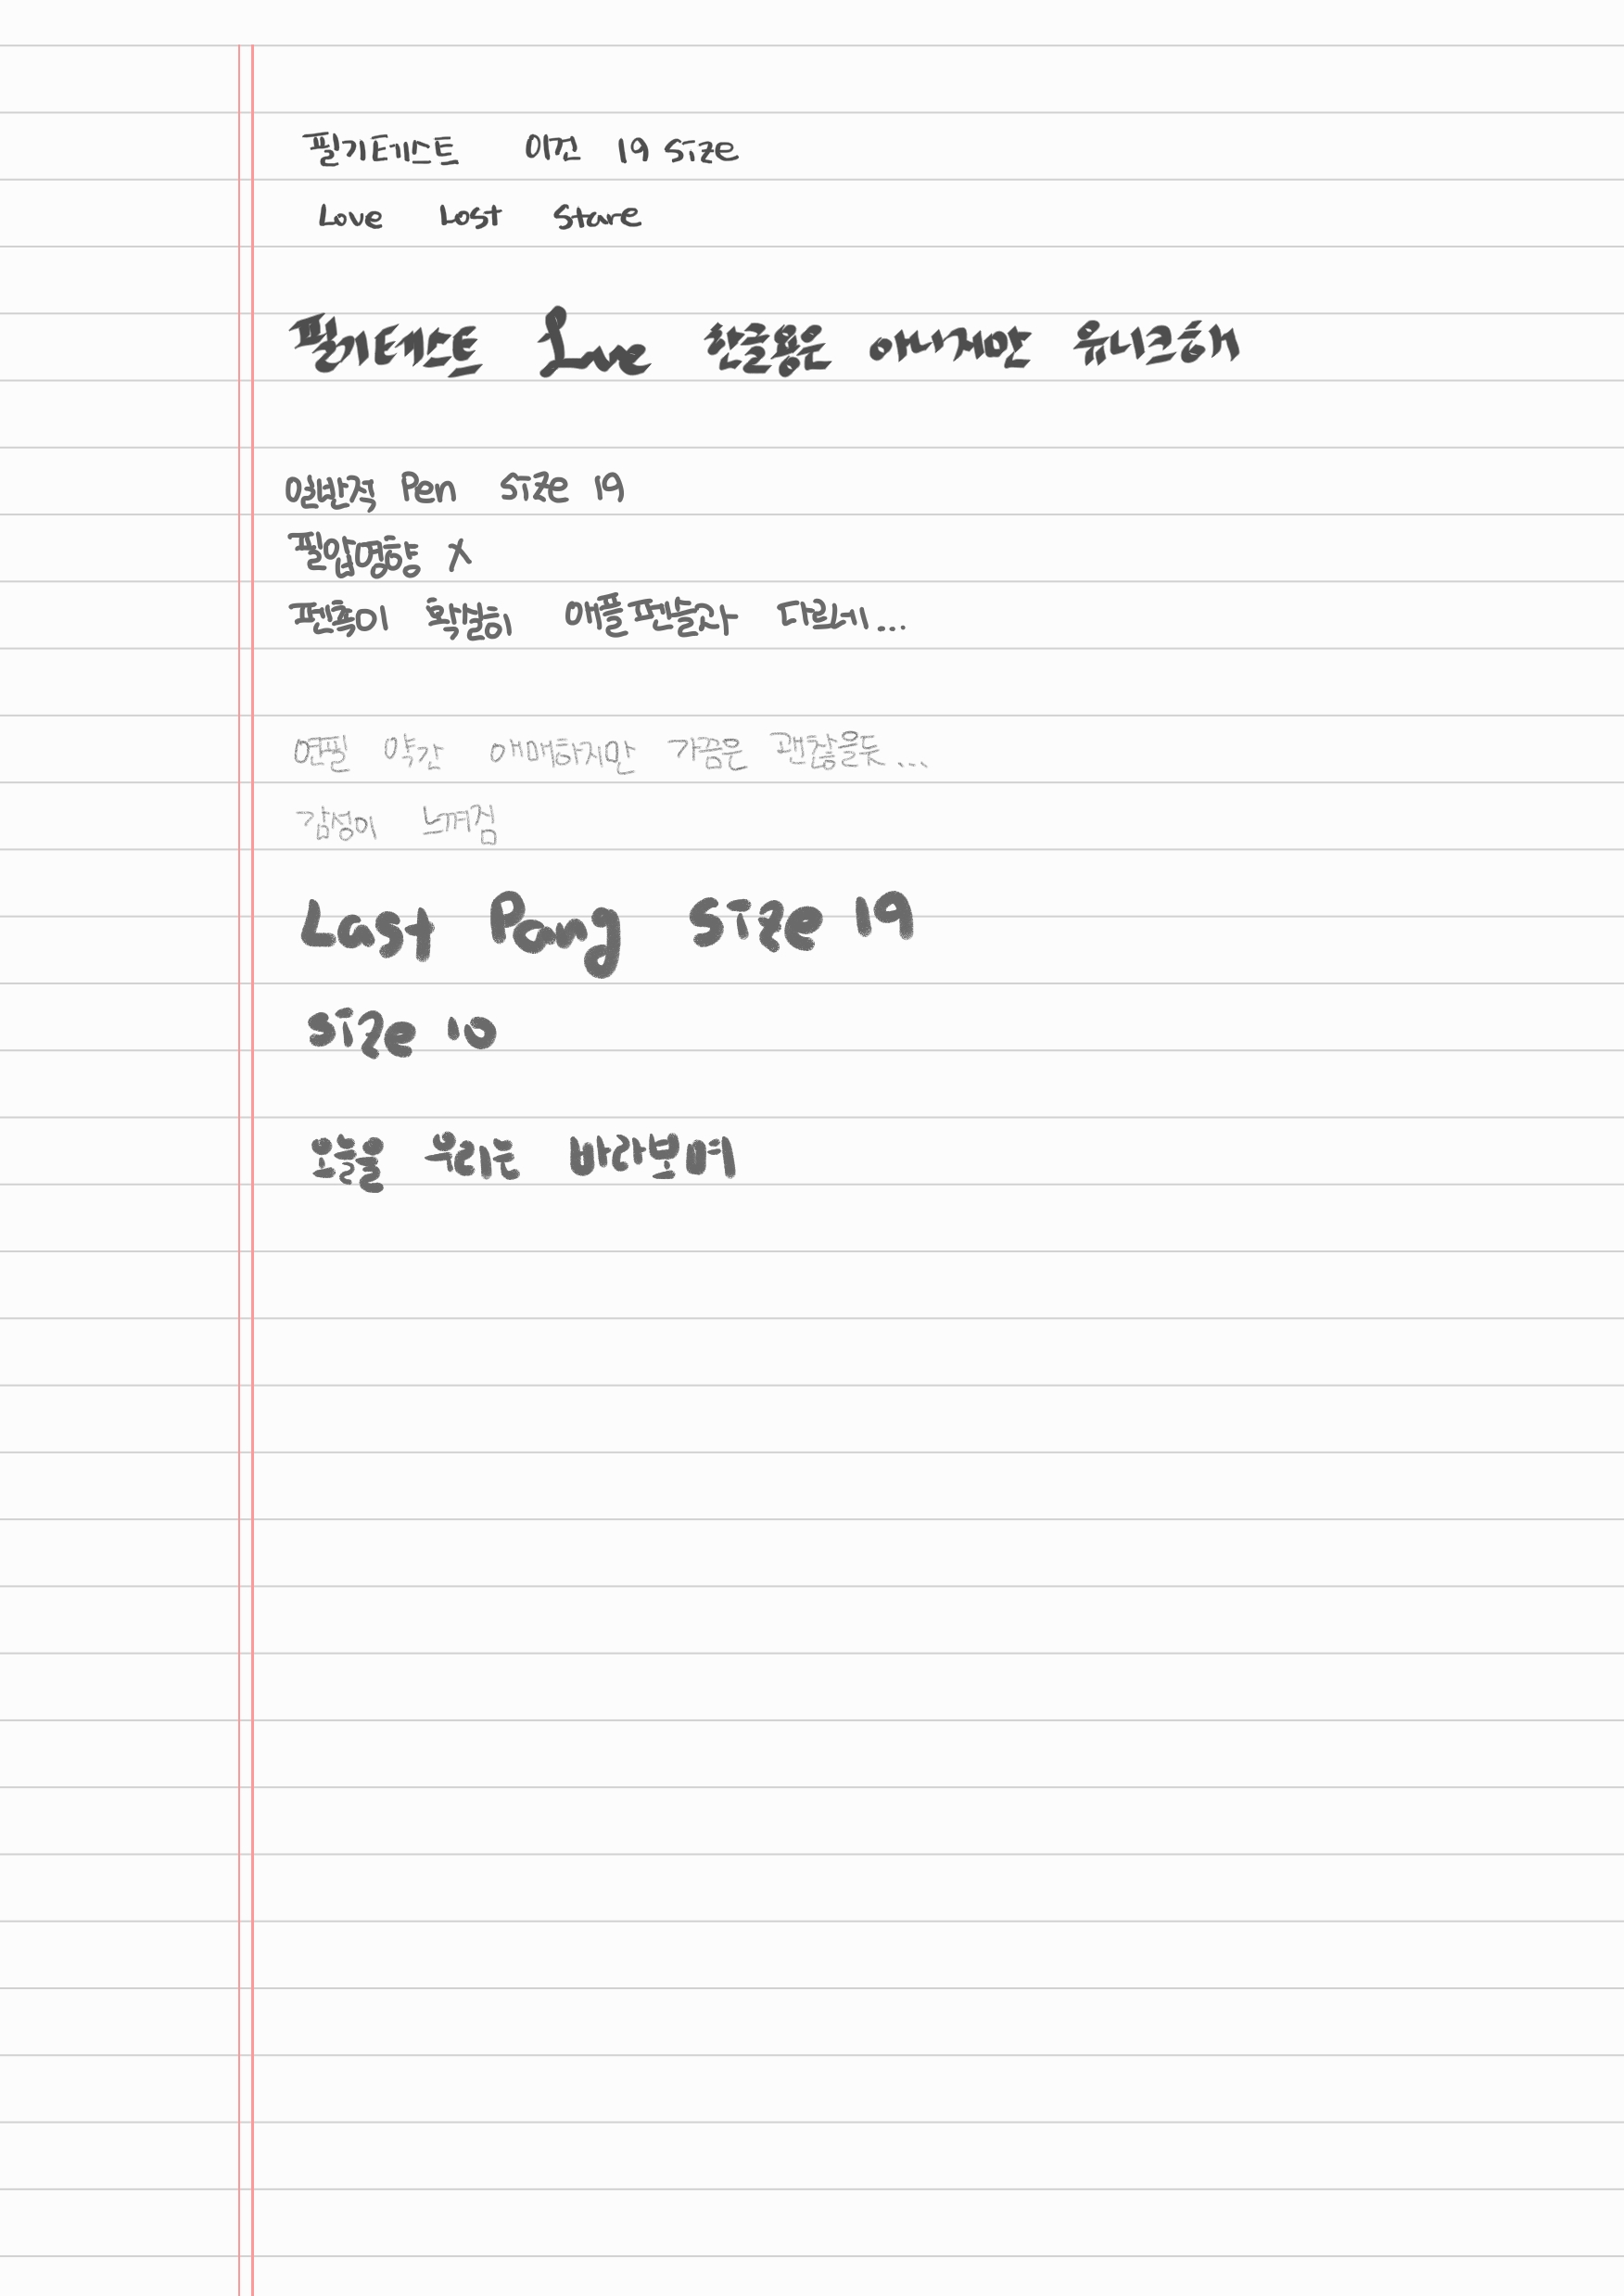 필기테스트 이건 19 size
Love Lost Stare
필기테스트 Love 한글용은 아니지만 유니크해
일반적 Pen size 19
필압영향 X
펜촉이 확실히 애플펜슬과 다르네...
연필 약간 애매하지만 가끔은 괜찮을듯...
감성이 느껴짐
Last Pang size 19
size 10
오늘을 우리는 바라보며